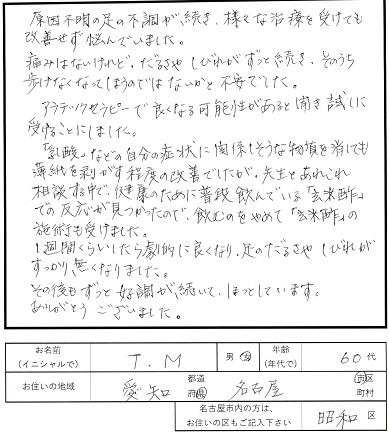 原因不明の足の不調が続き、様々な治療を受けても
改善せず悩んでいました。
痛みはないけれど、だるさやしびれがずっと続き、そのうち
歩けなくなってしまうのではないかと不安でした。
アラテックセラピーで良くなる可能性があると聞き試しに
受けることにしました。
「乳酸」などの自分の症状に関係しそうな物質を消しても
薄紙を剥がす程度の改善でしたが、先生とあれこれ
相談する中で、健康のために普段飲んでいる「玄米酢」
での反応が見つかったので、飲むのをやめて「玄米酢」の
施術も受けました。
1週間くらいしたら劇的に良くなり、足のだるさやしびれが
すっかり無くなりました。
その後もずっと好調が続いて、ほっとしています。
ありがとうございました。
お名前
(イニシャルで) T.M 男 女 年齢
(年代で) 60代
お住いの地域 愛知 都道
府県 名古屋 市区
町村
名古屋市内の方は、
お住いの区もご記入下さい 昭和 区